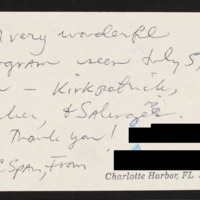 very wonderful
ogram seen July 5,
– Kirkpatrick,
her, & Salinger.
Thank you!
CSPAN, From
Charlotte Harbor, FL